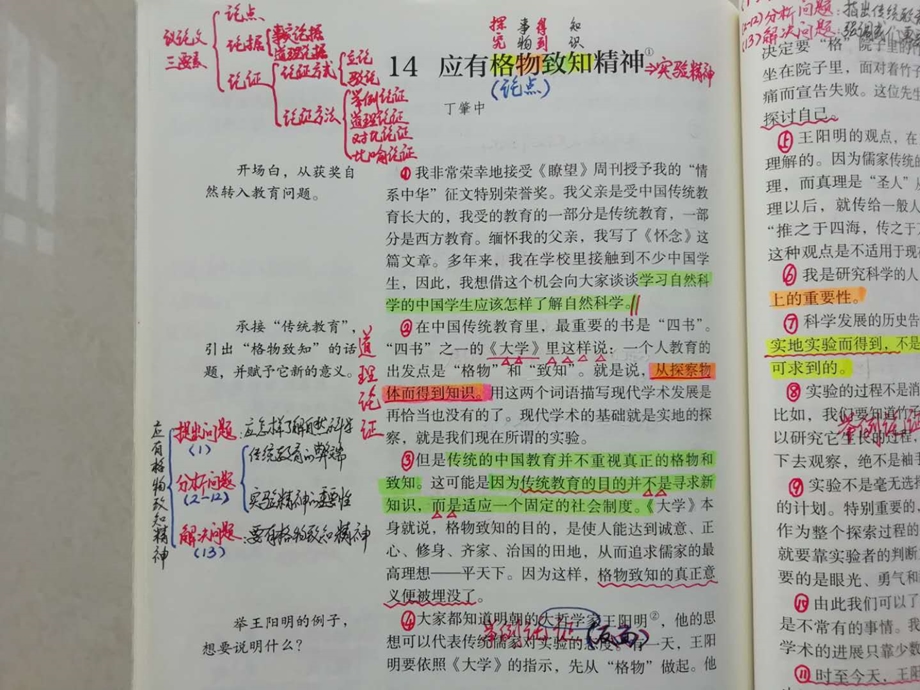 议论文
三要素
论点
论据
事实论据
道理论据
论证
论证方式
立论
驳论
论证方法
举例论证
道理论证
对比论证
比喻论证
探 事 得 知
究 物 到 识
14 应有格物致知精神①
→实验精神
(论点)
丁肇中
开场白，从获奖自
然转入教育问题。
①我非常荣幸地接受《瞭望》周刊授予我的“情
系中华”征文特别荣誉奖。我父亲是受中国传统教
育长大的，我受的教育的一部分是传统教育，一部
分是西方教育。缅怀我的父亲，我写了《怀念》这
篇文章。多年来，我在学校里接触到不少中国学
生，因此，我想借这个机会向大家谈谈学习自然科
学的中国学生应该怎样了解自然科学。
承接“传统教育”，
引出“格物致知”的话
题，并赋予它新的意义。
道理论证
②在中国传统教育里，最重要的书是“四书”。
“四书”之一的《大学》里这样说：一个人教育的
出发点是“格物”和“致知”。就是说，从探察物
体而得到知识。用这两个词语描写现代学术发展是
再恰当也没有的了。现代学术的基础就是实地的探
察，就是我们现在所谓的实验。
应有格物致知精神
提出问题：应怎样了解自然科学
(1)
分析问题
(2-12)
传统教育的弊端
实验精神的重要性
解决问题：要有格物致知精神
(13)
③但是传统的中国教育并不重视真正的格物和
致知。这可能是因为传统教育的目的并不是寻求新
知识，而是适应一个固定的社会制度。《大学》本
身就说，格物致知的目的，是使人能达到诚意、正
心、修身、齐家、治国的田地，从而追求儒家的最
高理想——平天下。因为这样，格物致知的真正意
义便被埋没了。
举王阳明的例子，
想要说明什么？
④大家都知道明朝的大哲学家王阳明②，他的思
举例论证（反面）
想可以代表传统儒家对实验的态度。有一天，王阳
明要依照《大学》的指示，先从“格物”做起。他
2-12)分析问题：指出传统教
(13)解决问题：强调
决定要“格”院子里的
坐在院子里，面对着竹子
痛而宣告失败。这位先生
探讨自己
⑤王阳明的观点，在
理解的。因为儒家传统的
理，而真理是“圣人”
理以后，就传给一般人
“推之于四海，传之于
这种观点是不适用于现
⑥我是研究科学的人
上的重要性。
⑦科学发展的历史告
实地实验而得到，不是
可求到的。
⑧实验的过程不是消
比如，我们要知道竹子
举例论证
以研究它生长的过程，
下去观察，绝不是袖手
⑨实验不是毫无选择
的计划。特别重要的，
作为整个探索过程的
就要靠实验者的判断
要的是眼光、勇气和
⑩由此我们可以了
是不常有的事情。我
学术的进展只靠少数
⑪时至今天，王阳